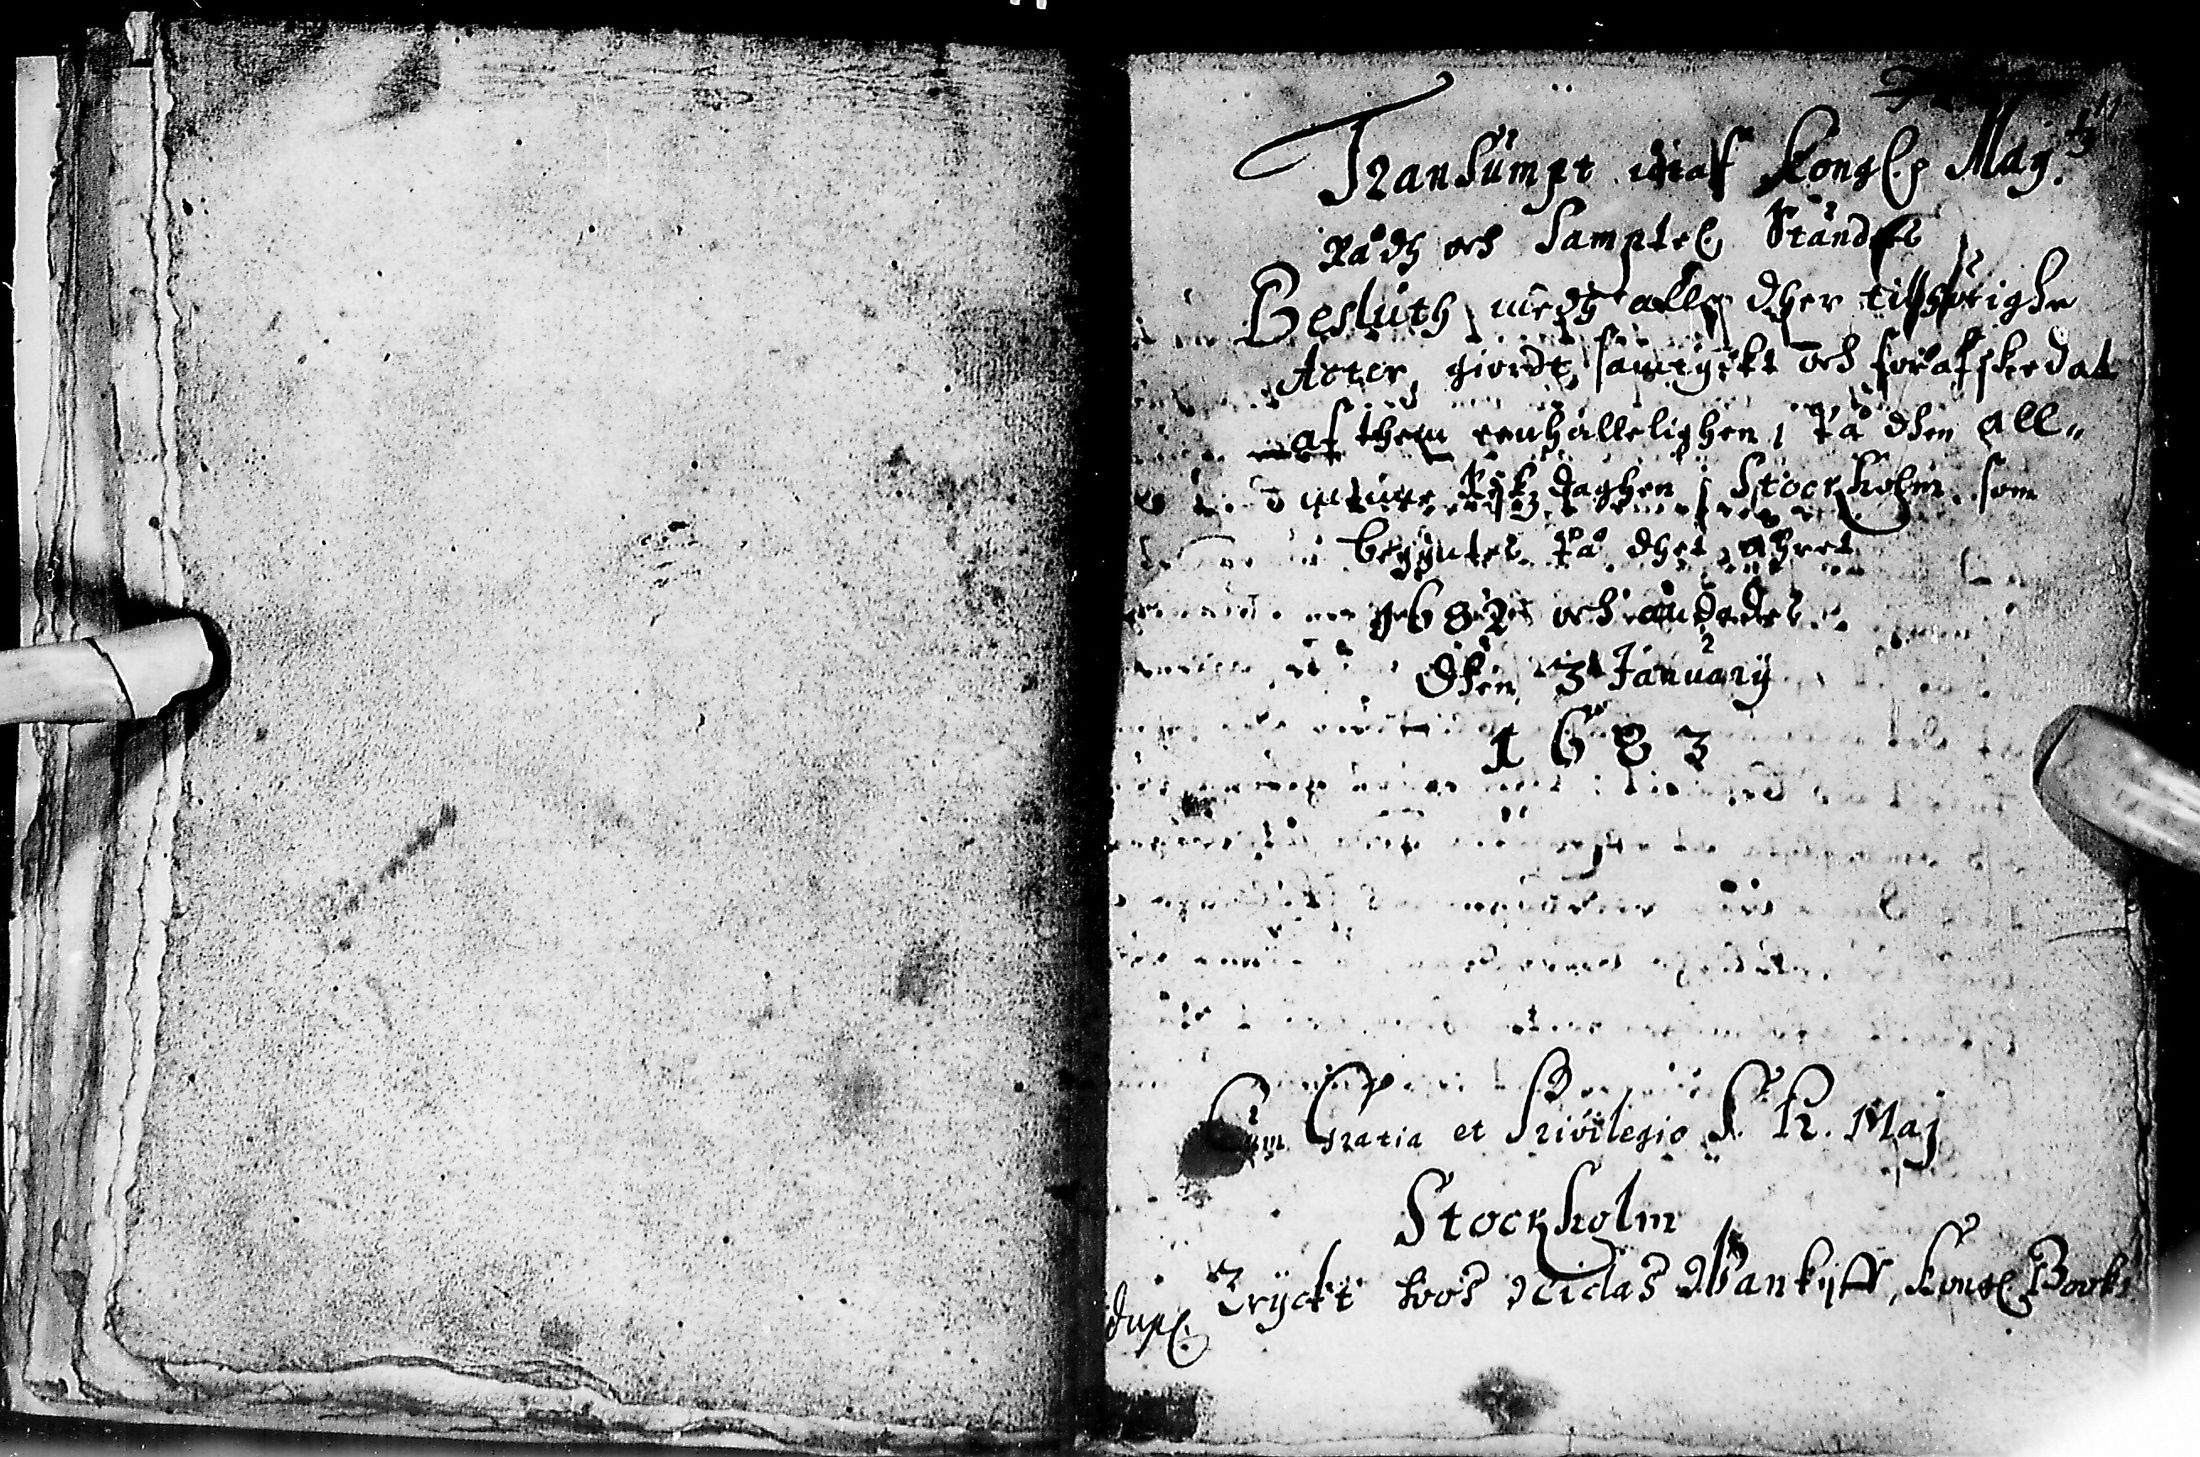 Transumpt utaf Kongl. Maij:tz
Rådz och Samptel. Ständers
Besluth medh alla dher tillhörighe
Acter, giordt, samtyckt och förafskedat
af them eenhällelighen, på dhen all„
männe Rijkz daghen i Stockholm. som
begyntes på dhet åhret
1682 och ändades
Dhen 3 January
1683
Cum Gratia et Privilegio S. R. Maj
Stockholm
Tryckt hoos Niclas Wankijff, Kongl. Bookt
dupl.